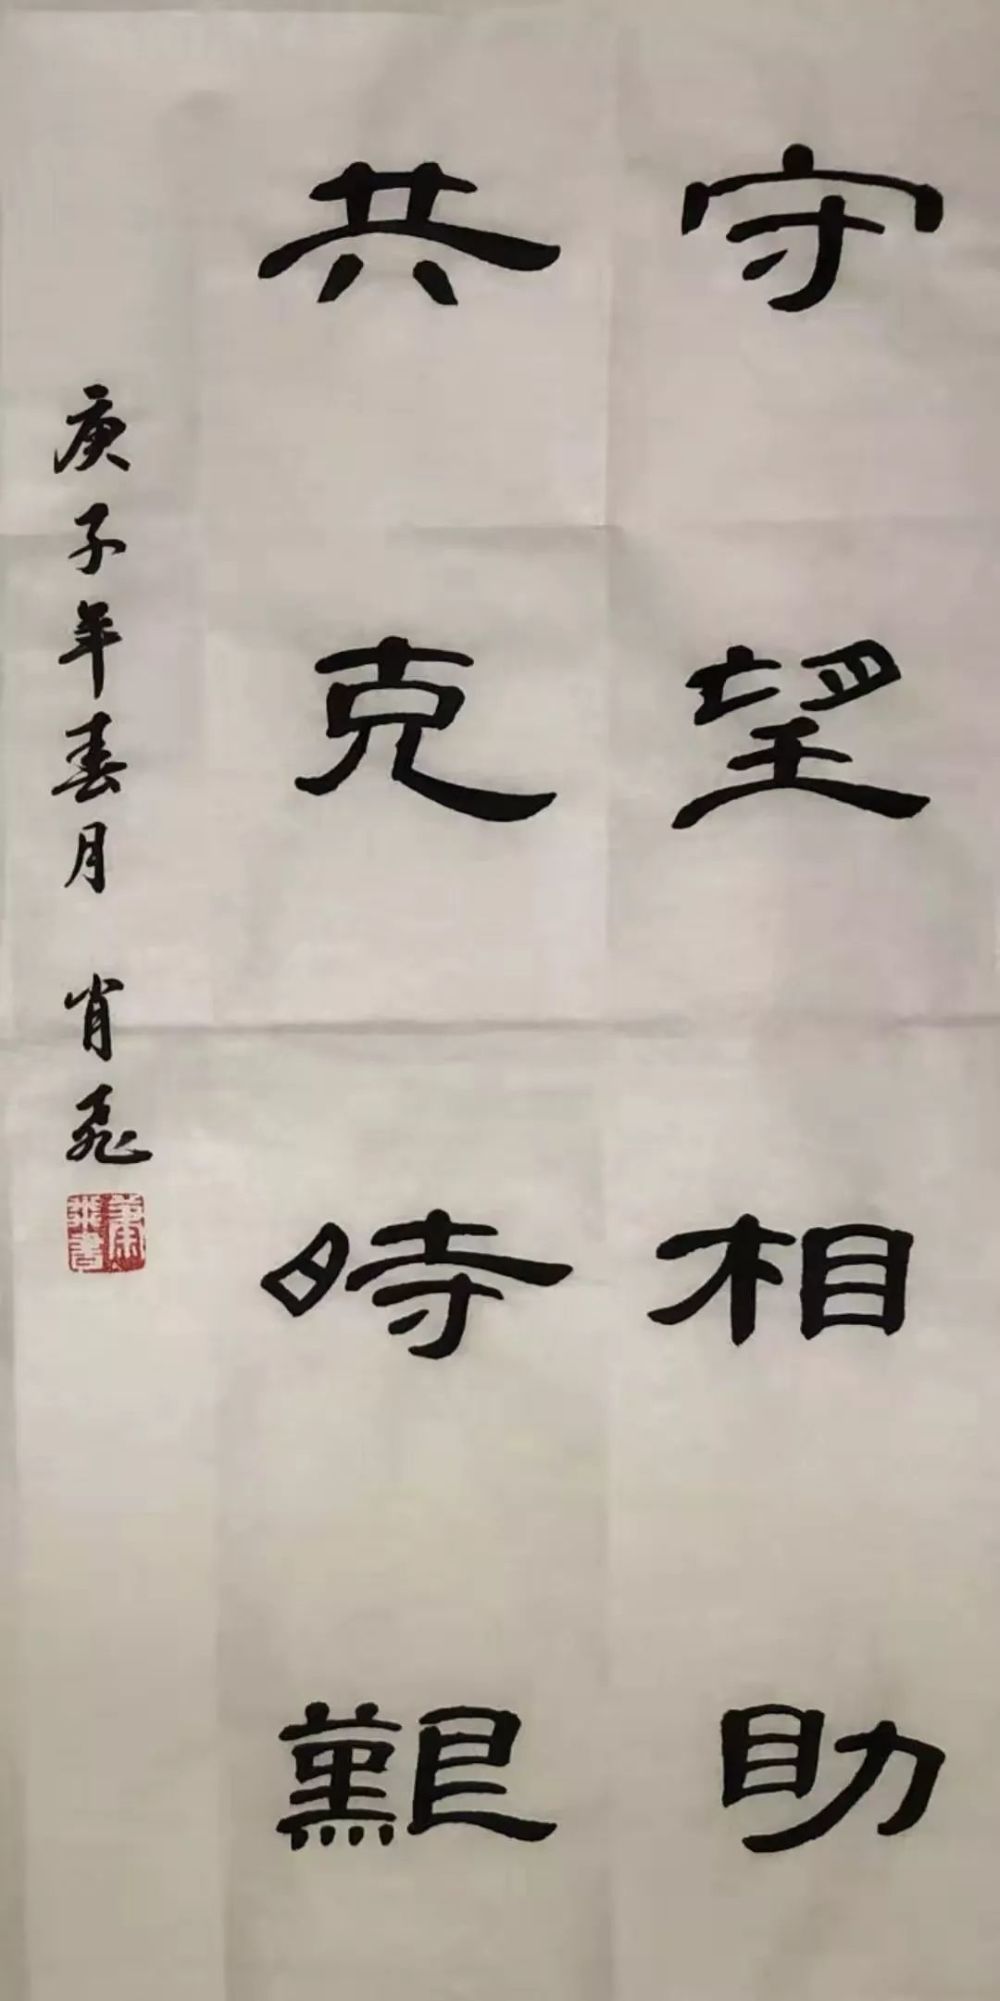 守望相助
共克時艱
庚子年春月 肖飛